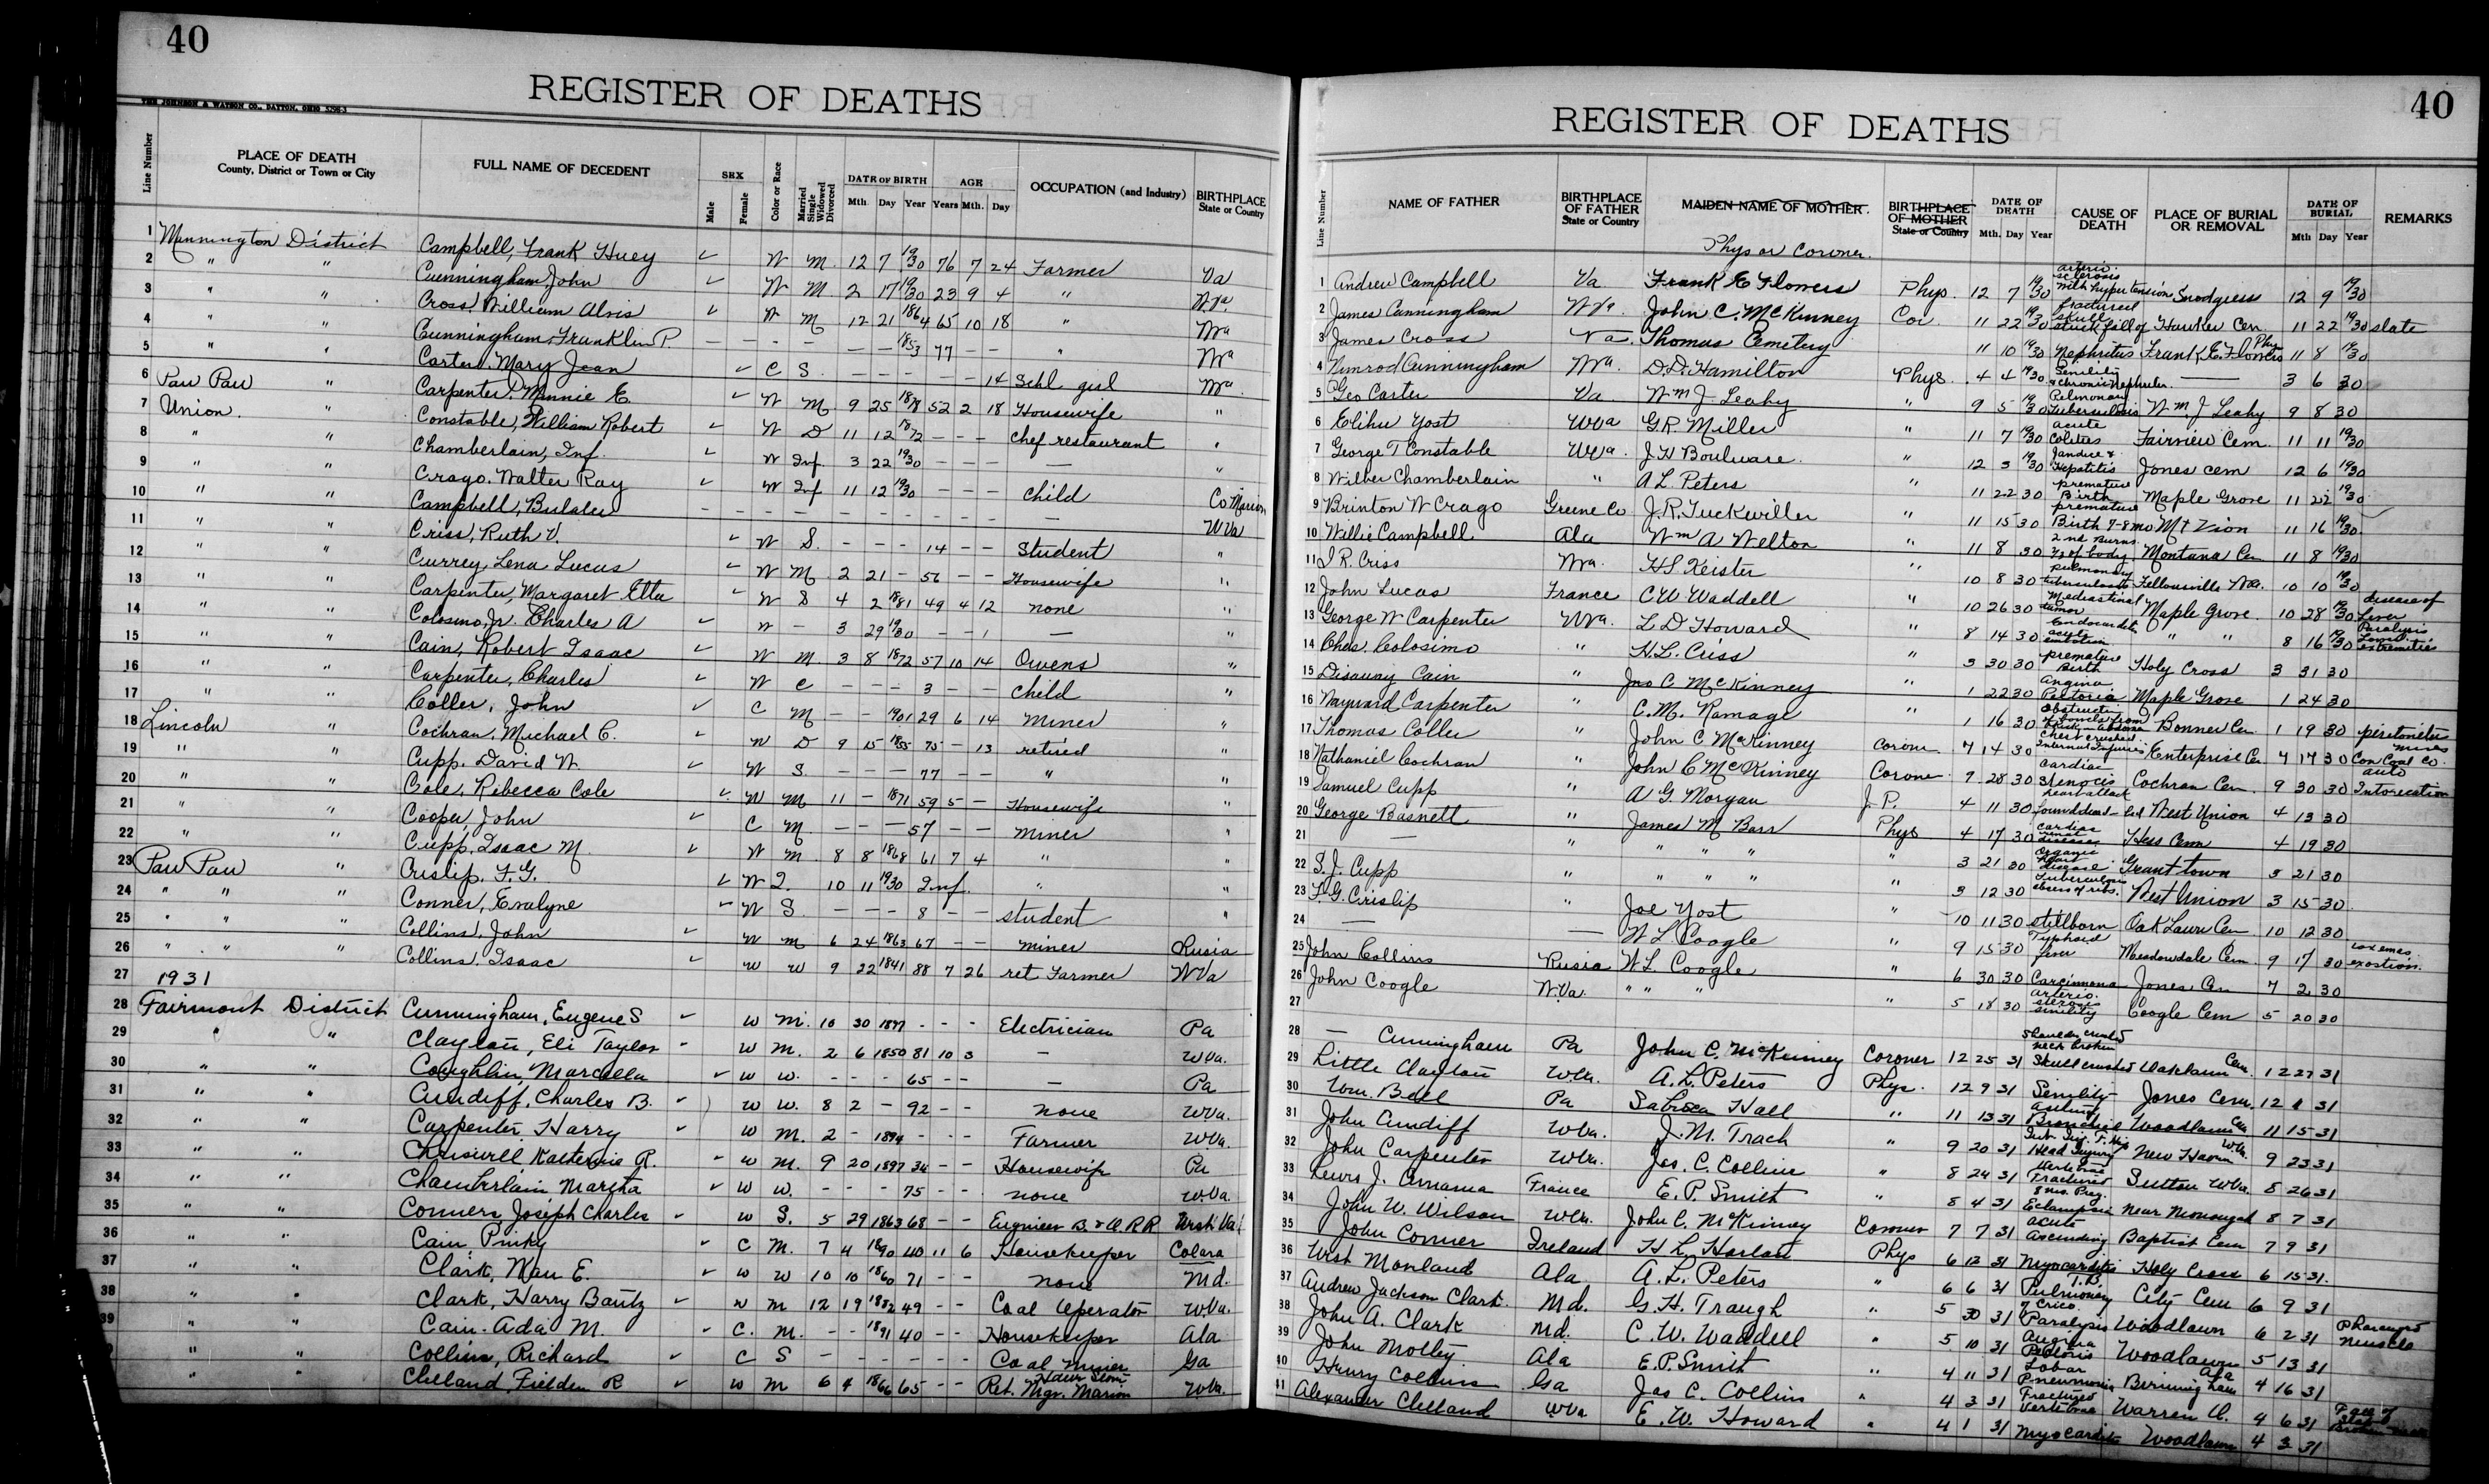 40
REGISTER OF DEATHS
THE JOHNSON & WATSON CO., DAYTON, OHIO
Line Number
PLACE OF DEATH
County, District or Town or City
FULL NAME OF DECEDENT
SEX
Male
Female
Color or Race
Married Single Widowed Divorced
DATE OF BIRTH
Mth. Day Year
AGE
Years Mth. Day
OCCUPATION (and Industry)
BIRTHPLACE
State or Country
1 Mannington District Campbell, Frank Huey ✓ W M. 12 7 1930 76 7 24 Farmer Va
2 " " Cunningham, John ✓ W M 2 17 1930 23 9 4 " W.Va.
3 " " Cross, William Alvis ✓ W M 12 21 1864 65 10 18 " Wva
4 " " Cunningham, Franklin P. — — — — — — 1853 77 — — " Wva
5 " " Carter, Mary Jean ✓ C S. — — — — — 14 Schl girl Wva.
6 Paw Paw " Carpenter, Minnie E. ✓ W M 9 25 1878 52 2 18 Housewife "
7 Union. " Constable, William Robert ✓ W D 11 12 1872 — — — chef restaurant "
8 " " Chamberlain, Inf. ✓ W Inf. 3 22 1930 — — — — "
9 " " Crago, Walter Ray ✓ W Inf 11 12 1930 — — — child Co Marion
10 " " Campbell, — — — — — — — — — — — W Va
11 " " Criss, Ruth V. ✓ W S. — — — 14 — — Student "
12 " " Currey, Lena Lucas ✓ W M. 2 21 — 56 — — Housewife "
13 " " Carpenter, Margaret Etta ✓ W S 4 2 1881 49 4 12 none "
14 " " Colosimo, Jr. Charles A ✓ W — 3 29 1930 — — 1 — "
15 " " Cain, Robert Isaac ✓ W M. 3 8 1872 57 10 14 Owens "
16 " " Carpenter, Charles ✓ W C — — — 3 — — child "
17 " " Coller, John ✓ C M — — 1901 29 6 14 Miner "
18 Lincoln " Cochran, Michael C. ✓ W D 9 15 1855 75 — 13 retired "
19 " " Cupp, David W. ✓ W S. — — — 77 — — " "
20 " " Cole, Rebecca Cole ✓ W M 11 — 1871 59 5 — Housewife "
21 " " Cooper, John ✓ C M. — — — 57 — — miner "
22 " " Cupp, Isaac M. ✓ W M. 8 8 1868 61 7 4 " "
23 Paw Paw " Crislip, F. G. ✓ W 10 11 1930 Inf. " "
24 " " " Conner, Evalyne ✓ W S. — — — 8 — — student "
25 " " " Collins, John ✓ W M 6 24 1863 67 — — miner Rusia
26 " " " Collins, Isaac W W 9 22 1841 88 7 26 ret Farmer W Va
27 1931
28 Fairmont District Cunningham, Eugene S ✓ W M. 10 30 1897 - - - Electrician Pa
29 " " Clayton, Eli Taylor ✓ W M. 2 6 1850 81 10 3 — W.Va.
30 " " Coughlin, Marcella ✓ W W. - - - 65 - - — Pa
31 " " Cundiff, Charles B. ✓ W W. 8 2 — 92 — — none W.Va.
32 " " Carpenter, Harry ✓ W M. 2 - 1894 - - - Farmer W.Va.
33 " " Katherine R. ✓ W M. 9 20 1897 34 - - Housewife Pa
34 " " Chamberlain, Martha ✓ W W. - - - 75 - - none W.Va.
35 " " Conners, Joseph Charles ✓ W S. 5 29 1863 68 - - Engineer B. & O. R R West Va.
36 " " Cain, Pinky ✓ C M. 7 4 1890 40 11 6 Housekeeper
37 " " Clark, Nan E. ✓ W W 10 10 1860 71 - - none Md.
38 " " Clark, Harry Bantz ✓ W M 12 19 1882 49 - - Coal Operator W.Va.
39 " " Cain, Ada M. ✓ C. M. - - 1891 40 - - Housekeeper Ala
" " Collins, Richard ✓ C S — — — — — — Coal Miner Ga
" " Clelland, Fielden R ✓ W M 6 4 1866 65 - - Ret. Mgr. Marion W.Va.
40
REGISTER OF DEATHS
Line Number
NAME OF FATHER
BIRTHPLACE OF FATHER
State or Country
MAIDEN NAME OF MOTHER.
Phys or Coroner.
BIRTHPLACE OF MOTHER
State or Country
DATE OF DEATH
Mth. Day Year
CAUSE OF DEATH
PLACE OF BURIAL OR REMOVAL
DATE OF BURIAL
Mth Day Year
REMARKS
1 Andrew Campbell Va Frank E Flowers Phys. 12 7 1930 arterio sclerosis with hypertension Snodgrass 12 9 1930
2 James Cunningham W Va. John C. McKinney Cor. 11 22 1930 fractured skull struck fall of Hawker Cem. 11 22 1930 slate
3 James Cross Va. Thomas Cemetery 11 10 1930 Nephritis Frank E. Flowers Phy 11 8 1930
4 Nimrod Cunningham Wva. D.D. Hamilton Phys. 4 4 1930 Senility & chronic Nephritis. — 3 6 30
5 Geo Carter Va Wm J. Leahy " 9 5 1930 Pulmonary Tuberculosis Wm. J Leahy 9 8 30
6 Elihu Yost WVa G.R. Miller " 11 7 1930 acute Colitis Fairview Cem. 11 11 1930
7 George T Constable WVa. J H Boulware. " 12 3 1930 Jandice & Hepatitis Jones cem 12 6 1930
8 Wilber Chamberlain " A L Peters " 11 22 30 premature Birth Maple Grove 11 22 1930
9 Brinton W Crago Greene Co J. R. Tuckwiller " 11 15 30 premature Birth 7-8 mo Mt Zion 11 16 1930
10 Willie Campbell Ala Wm A Welton " 11 8 30 2nd Burns ⅔ of body Montana Cem 11 8 1930
11 I R. Criss Wva. H S Keister " 10 8 30 pulmonary tuberculosis Fellowsville Wva. 10 10 1930
12 John Lucas France C W Waddell " 10 26 30 Mediastinal tumor Maple Grove. 10 28 1930 disease of Liver
13 George W Carpenter WVa. L D Howard " 8 14 30 Endocarditis acute " " 8 16 1930 Paralysis Lower extremitie
14 Chas. Colosimo " H. L. Criss " 3 30 30 premature Birth Holy Cross 3 31 30
15 Cain " Jno C McKinney " 1 22 30 Angina Pectoria Maple Grove 1 24 30
16 Carpenter " C. M. Ramage " 1 16 30 Obstructi of bowels from Bonner Cem. 1 19 30 peritonitis
17 Thomas Coller " John C McKinney Corone 7 14 30 Chest crushed. Internal Injuries Enterprise Cem 7 17 30 Con Coal Co. mines
18 Nathaniel Cochran " John C McKinney Corone 9 28 30 Cardiac Stenocis Cochran Cem. 9 30 30 auto Intoxication
19 Samuel Cupp " A G. Morgan J. P. 4 11 30 heart attack found dead - bed West Union 4 13 30
20 George Basnett " James M Barr Phys 4 17 30 Cardiac renal disease Hess Cem 4 19 30
21 — " " " " " 3 21 30 Organic heart disease Grant town 3 21 30
22 S. J. Cupp " " " " " 3 12 30 Tuberculosis abscess of ribs. West Union 3 15 30.
23 F. G. Crislip " Joe Yost " 10 11 30 stillborn Oak Lawn Cem. 10 12 30
24 — — W L Coogle " 9 15 30 Typhoid fever Meadowdale Cem. 9 17 30
25 John Collins Rusia W L. Coogle " 6 30 30 Carcinnoma Jones Cem 7 2 30
26 John Coogle W.Va. " " " " 5 18 30 arterio. sclerosis senility Coogle Cem 5 20 30
27
28 — Cunningham Pa John C. McKinney Coroner 12 25 31 Shoulder crushed neck broken Skull crushed Oaklawn Cem. 12 27 31
29 Little Clayton W.Va. A. L. Peters Phys. 12 9 31 Senility Jones Cem. 12 31
30 Wm. Bell Pa Hall " 11 13 31 asthma Bronchial Woodlawn Cem 11 15 31
31 John Cundiff W.Va. J. M. Trach " 9 20 31 Head Injury New Haven W.Va. 9 23 31
32 John Carpenter W.Va. Jas. C. Collins " 8 24 31 Vertebrae Fractured Sutton W.Va. 8 26 31
33 Lewis J. France E. P. Smith " 8 4 31 8 mo. Preg. Eclampsia Near Monongah 8 7 31
34 John W. Wilson W.Va. John C. McKinney Coroner 7 7 31 acute ascending Baptist Cem 7 9 31
35 John Conner Ireland H L. Harlan Phys 6 12 31 Myocarditis Holy Cross 6 15 31.
36 West Monland Ala A. L. Peters " 6 6 31 T.B. Pulmonary City Cem 6 9 31
37 Andrew Jackson Clark. Md. G. H. Traugh " 5 30 31 Paralysis Woodlawn 6 2 31
38 John A. Clark Md. C. W. Waddell " 5 10 31 Angina Pectoris Woodlawn 5 13 31
39 John Motley Ala E. P. Smith " 4 11 31 Lobar Pneumonia Birmingham Ala 4 16 31
40 Henry Collins Ga Jas C. Collins " 4 3 31 Fractured Vertebrae Warren O. 4 6 31
41 Alexander Clelland W.Va E. W. Howard " 4 1 31 Myocarditis Woodlawn 4 3 31